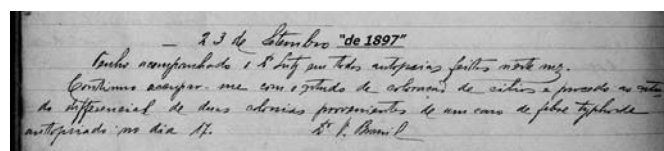 — 23 de Setembro "de 1897"
Tenho acompanhado o Dr Lutz em todas autopsias feitas neste mez.
Continuo a occupar-me com o estudo de coloração de cilios e procedo ao estu-
do differencial de duas colonias provenientes de um caso de febre typhoide
autopsiado no dia 17. Dr V. Brazil